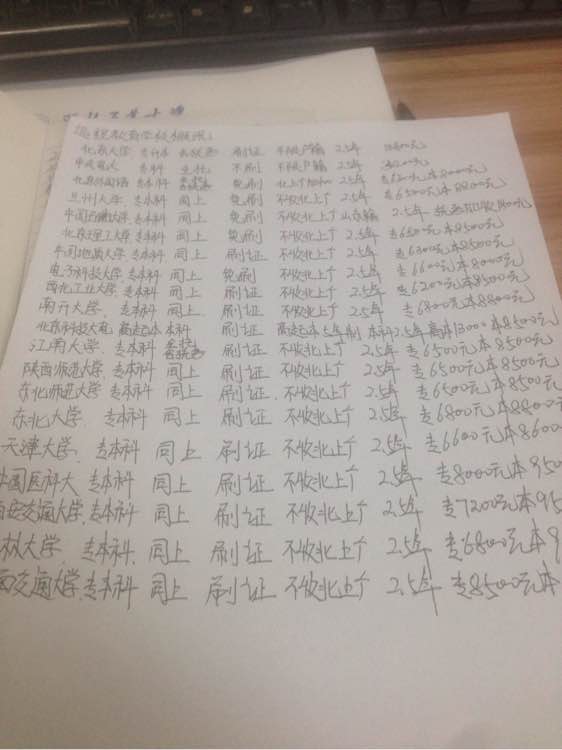 远程教育学校概况:
北京大学、专升本 刷证 不收户籍 2.5年
中央电大 专科 不刷 不收户籍 2.5年
北京外国语 专本科 免刷 2.5年 本8000元
兰州大学、专本科 同上 免刷 不收北上广 2.5年 专6500元本8800元
中国石油大学、专本科 同上 免刷 不收北上广 山东籍 2.5年
北京理工大学、专本科 同上 免刷 不收北上广 2.5年 专6500元本8500元
中国地质大学、专本科 同上 刷证 不收北上广 2.5年 专6300元本8500元
电子科技大学、专本科 同上 免刷 不收北上广 2.5年 专6600元本8000元
西北工业大学、专本科 同上 刷证 不收北上广 2.5年 专6200元本8500元
南开大学、专本科 同上 刷证 不收北上广 2.5年 专6800元本8800元
北京科技大学 高起本 本科 刷证 高起本5年制 本科2.5年 高本13000本8500元
江南大学、专本科 刷证 不收北上广 2.5年 专6500元本8500元
陕西师范大学、专本科 同上 刷证 不收北上广 2.5年 专6500元本8500元
东北师范大学、专本科 同上 刷证、不收北上广 2.5年 专6500元本8500元
东北大学、专本科 同上 刷证 不收北上广 2.5年 专6800元本8800
天津大学、专本科 同上 刷证 不收北上广 2.5年 专6600元本8600
中国医科大 专本科 同上 刷证 不收北上广 2.5年 专8000元本950
西安交通大学 专本科 同上 刷证 不收北上广 2.5年 专7200元本95
大学、专本科、同上 刷证 不收北上广 2.5年 专6800元本9
西交通大学、专本科 同上 刷证 不收北上广 2.5年 专8500元本